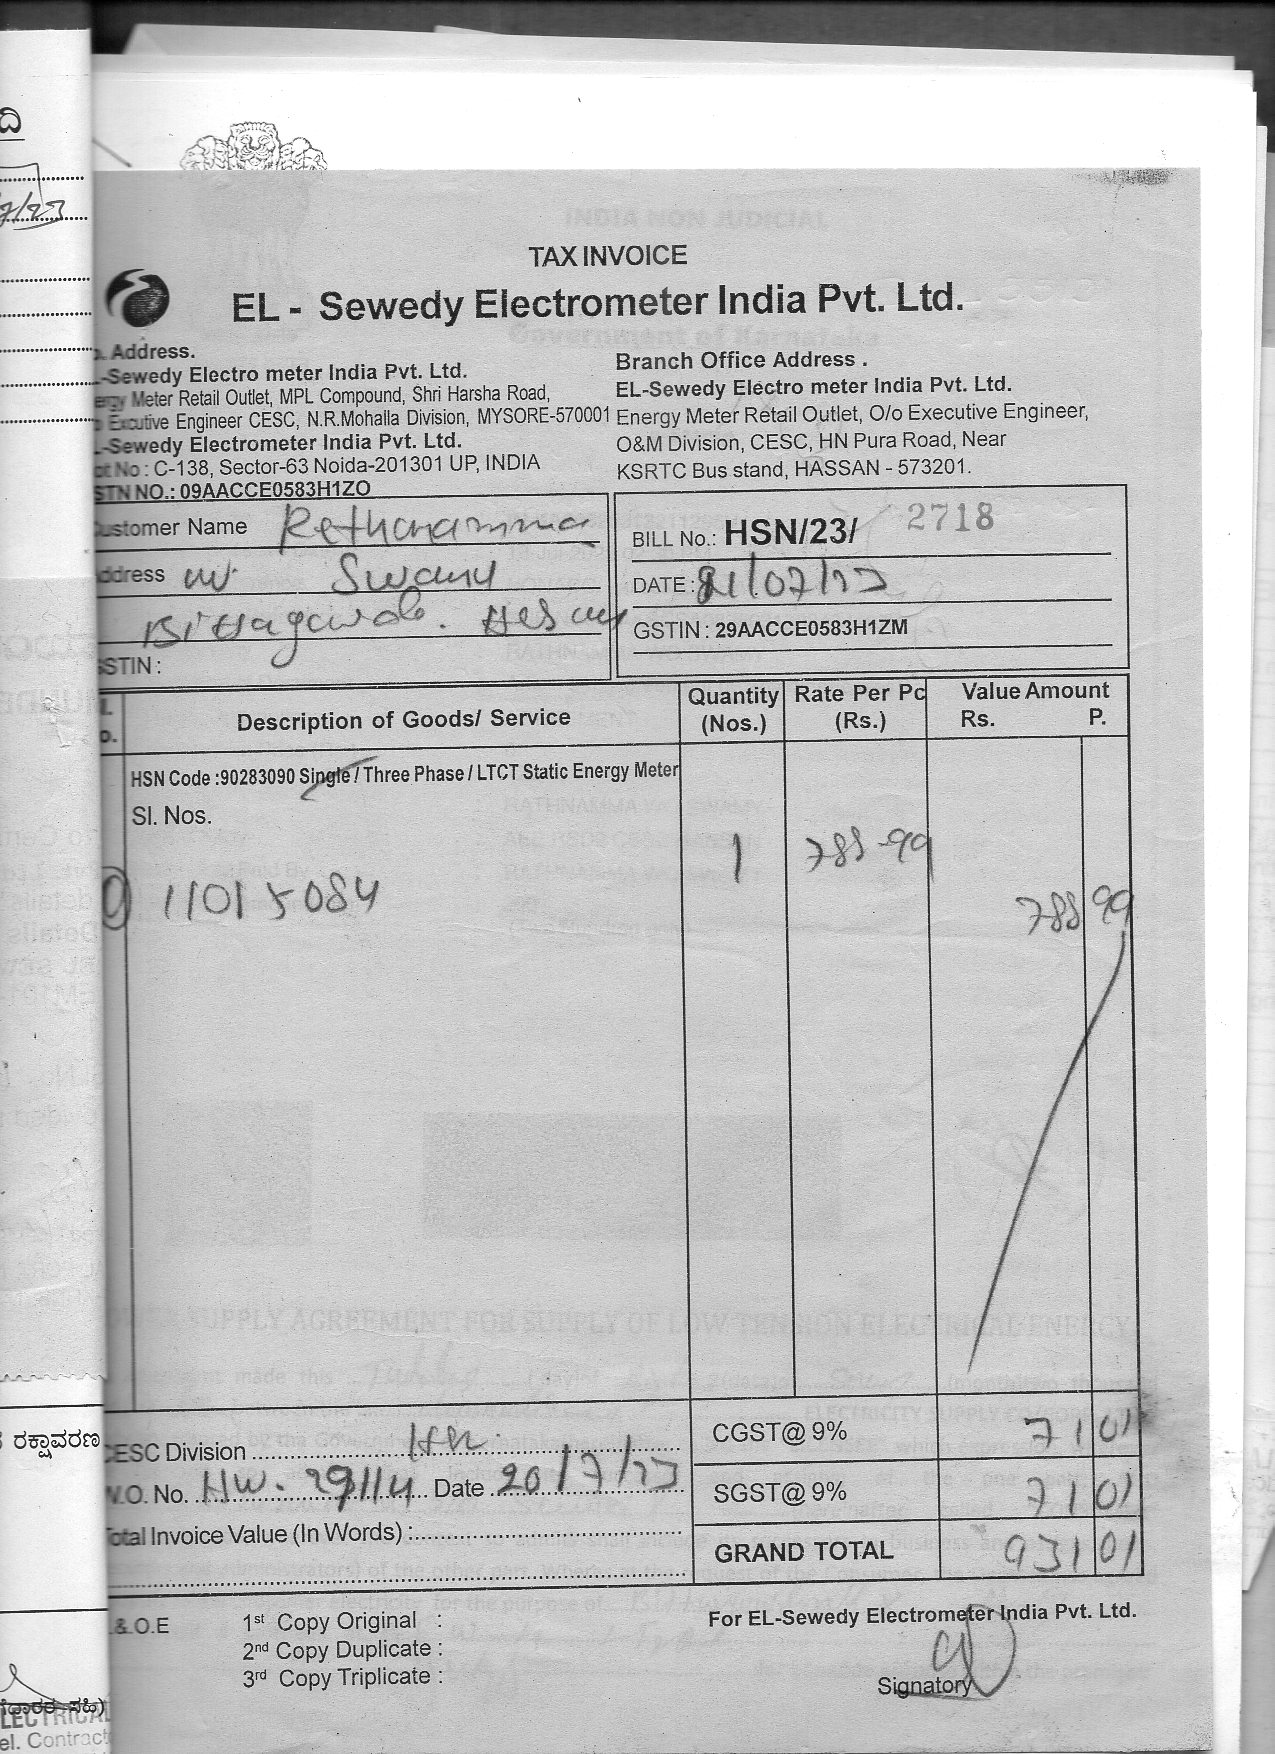 TAX INVOICE
EL - Sewedy Electrometer India Pvt. Ltd.
Address.
-Sewedy Electro meter India Pvt. Ltd.
Meter Retail Outlet, MPL Compound, Shri Harsha Road,
Excutive Engineer CESC, N.R.Mohalla Division, MYSORE-570001
-Sewedy Electrometer India Pvt. Ltd.
No : C-138, Sector-63 Noida-201301 UP, INDIA
STN NO.: 09AACCE0583H1ZO
Branch Office Address .
EL-Sewedy Electro meter India Pvt. Ltd.
Energy Meter Retail Outlet, O/o Executive Engineer,
O&M Division, CESC, HN Pura Road, Near
KSRTC Bus stand, HASSAN - 573201.
ustomer Name Rethanamma
ddress w Swamy
STIN :
BILL No.: HSN/23/ 2718
DATE : 21/07/23
GSTIN : 29AACCE0583H1ZM
Description of Goods/ Service
Quantity (Nos.)
Rate Per Pc (Rs.)
Value Amount
Rs. P.
HSN Code :90283090 Single / Three Phase / LTCT Static Energy Meter
Sl. Nos.
11015084 1 788-99 788 99
CESC Division Hn
W.O. No. HW. 29114 Date 20/7/23
Total Invoice Value (In Words) :
CGST@ 9% 71 01
SGST@ 9% 71 01
GRAND TOTAL 931 01
&.O.E
1st Copy Original :
2nd Copy Duplicate :
3rd Copy Triplicate :
For EL-Sewedy Electrometer India Pvt. Ltd.
Signatory
ರಕ್ಷಾವರಣ
LECTRICAL
el. Contract